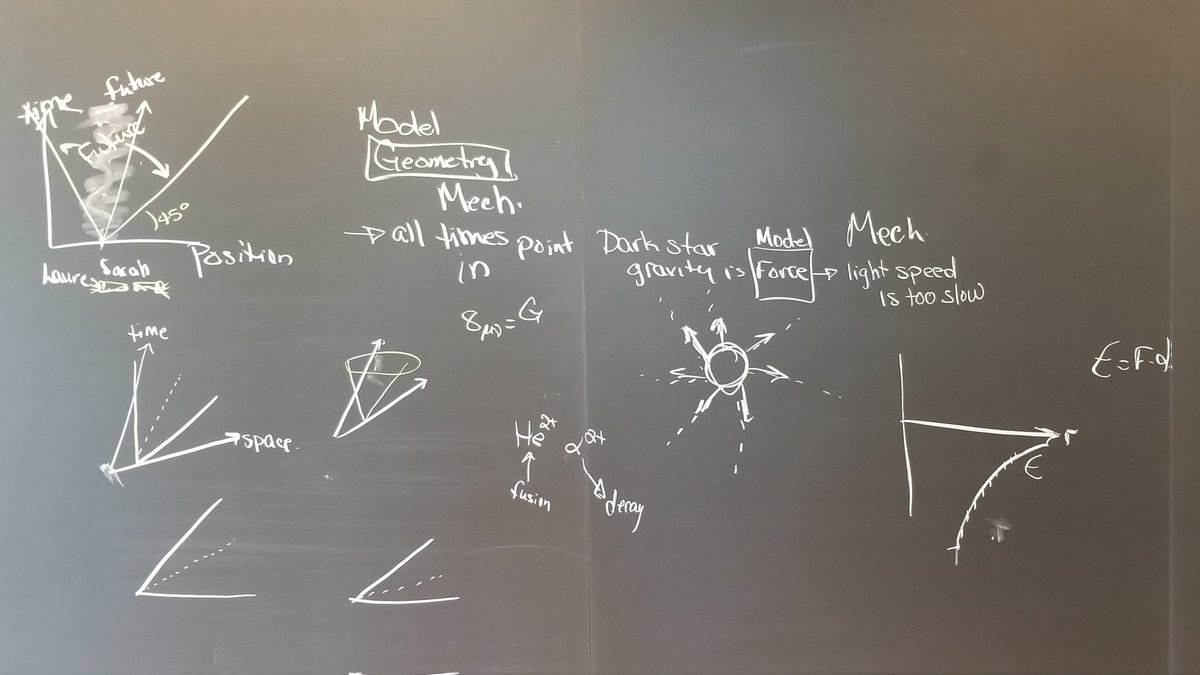 time
future
Future
45°
Position
Sarah
Model
Geometry
Mech.
→ all times point
in
Dark star
gravity is
Model
Force →
Mech.
light speed
is too slow
E = F·d
time
space
He²⁺
α²⁺
fusion
decay
r
E